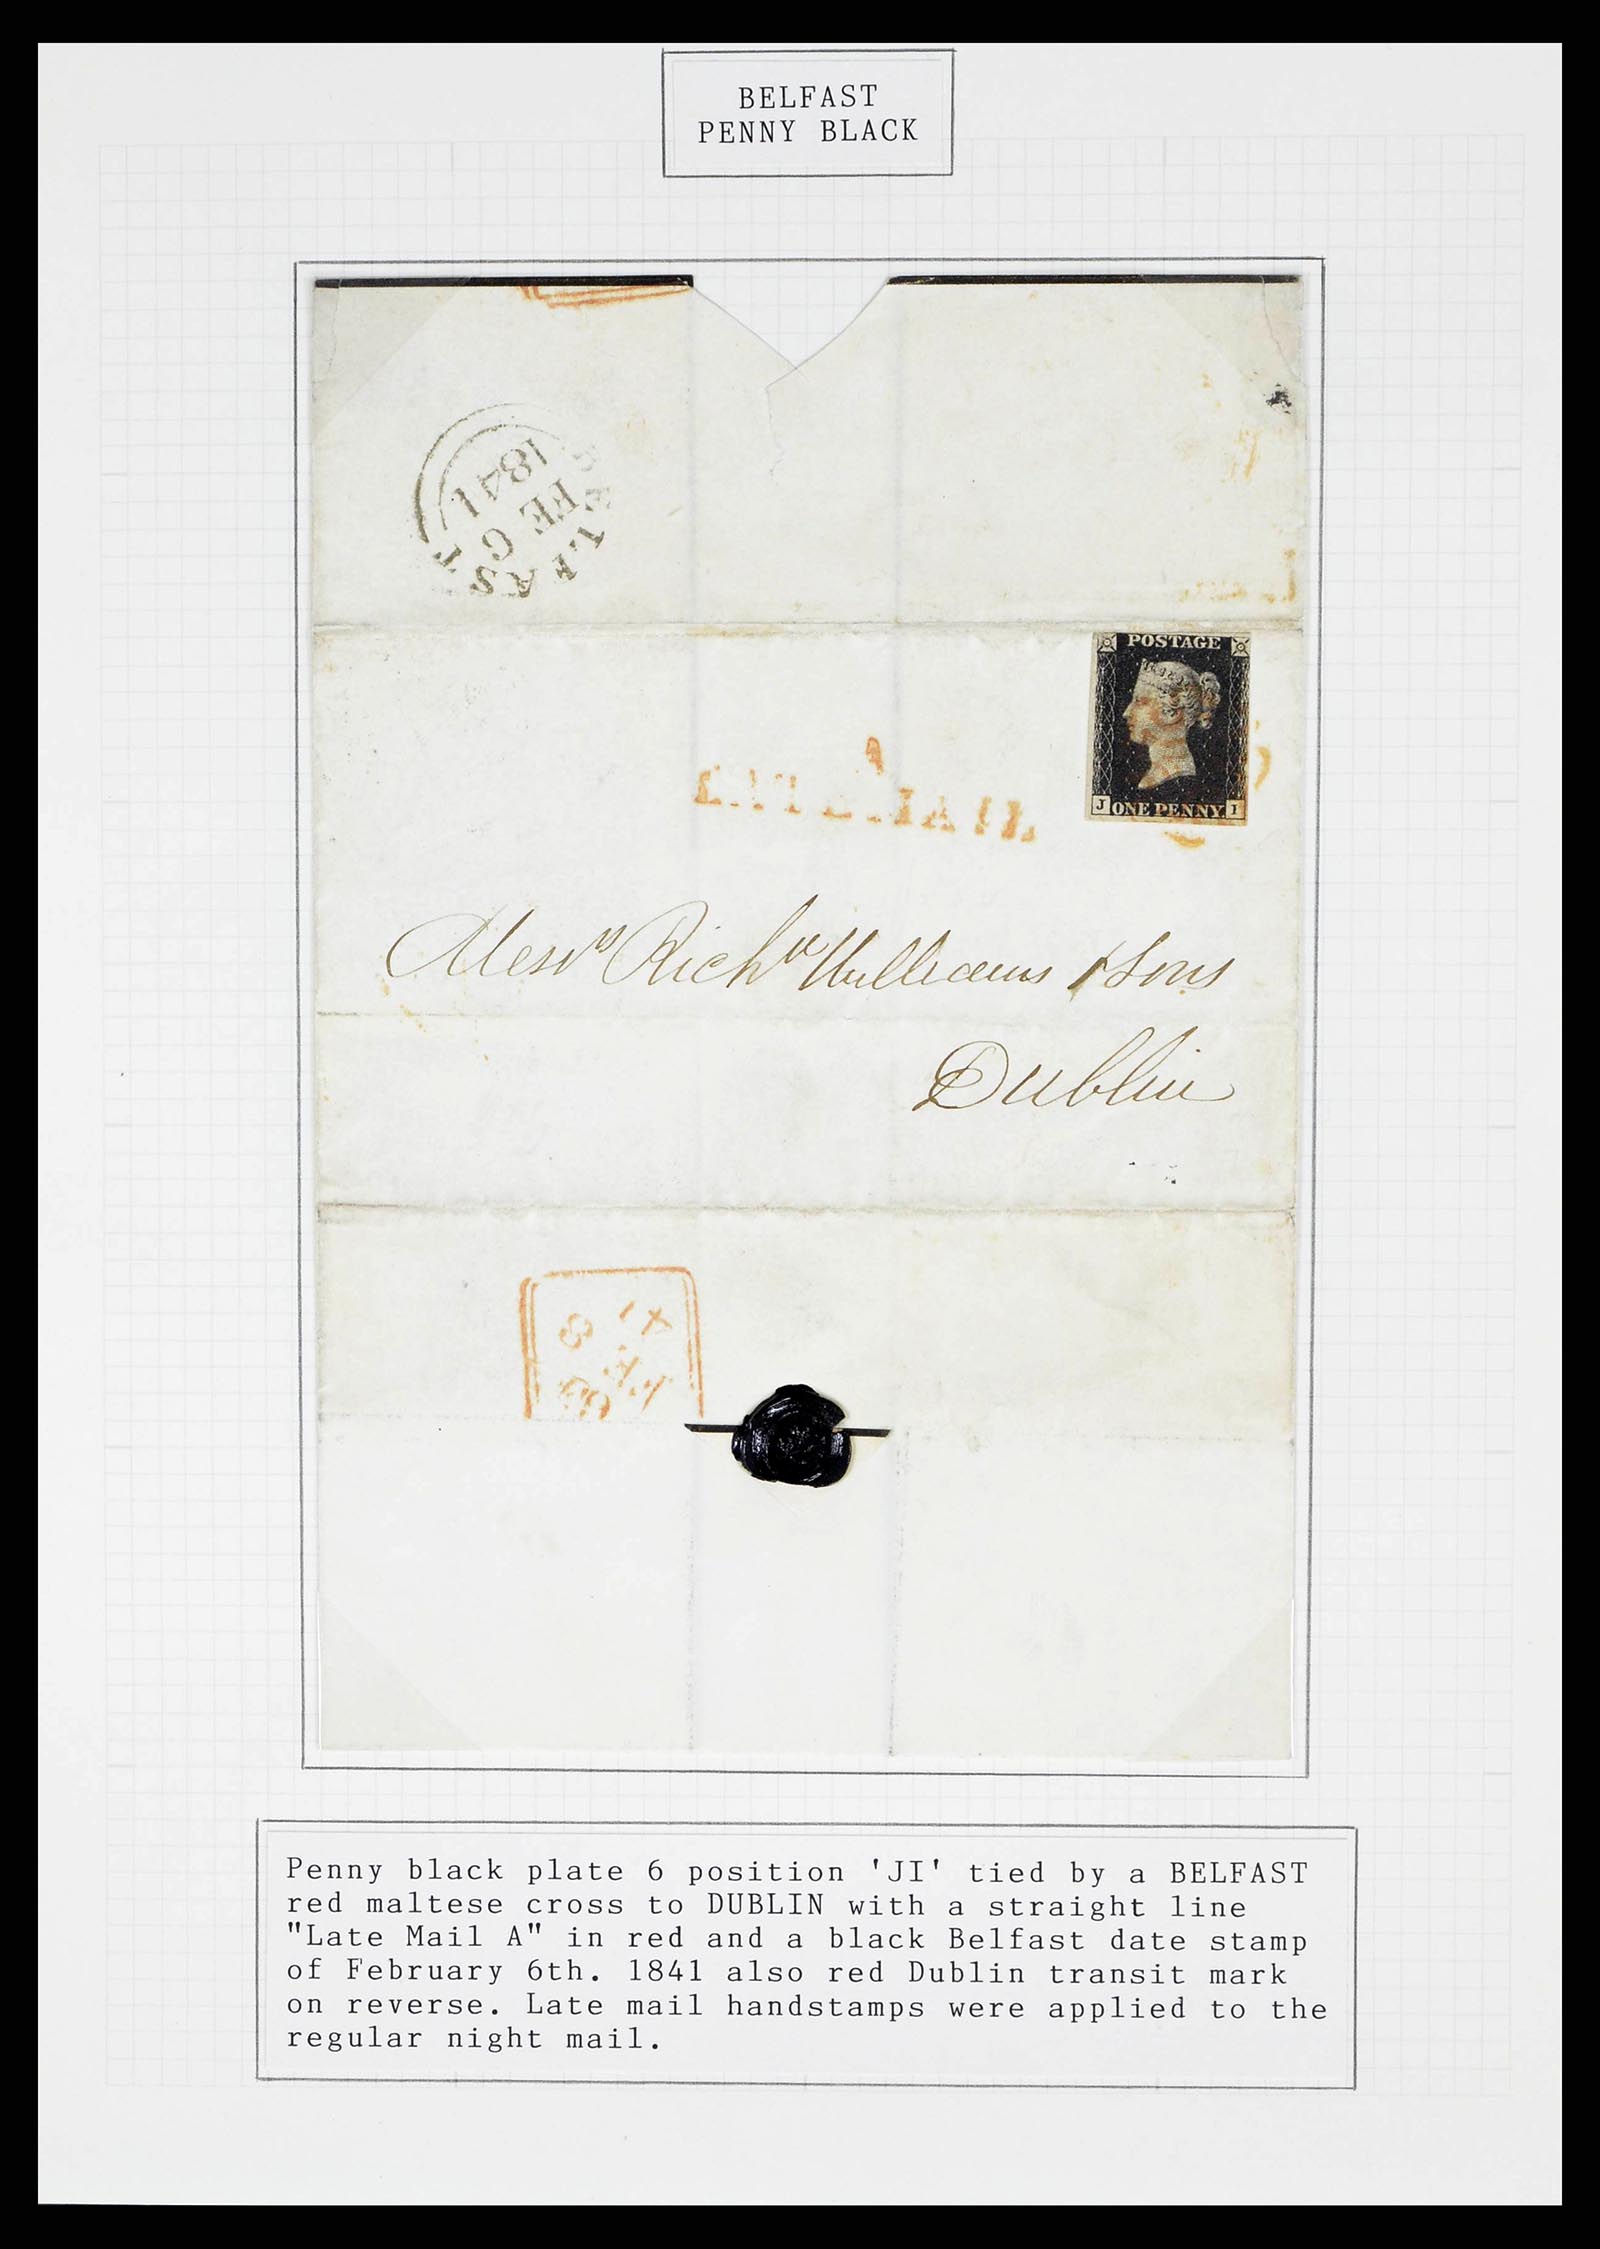 BELFAST
PENNY BLACK
BELFAST
FE 6
1841
POSTAGE
J ONE PENNY I
A
LATE MAIL
Messrs Richd Williams & Sons
Dublin
Penny black plate 6 position 'JI' tied by a BELFAST
red maltese cross to DUBLIN with a straight line
"Late Mail A" in red and a black Belfast date stamp
of February 6th. 1841 also red Dublin transit mark
on reverse. Late mail handstamps were applied to the
regular night mail.